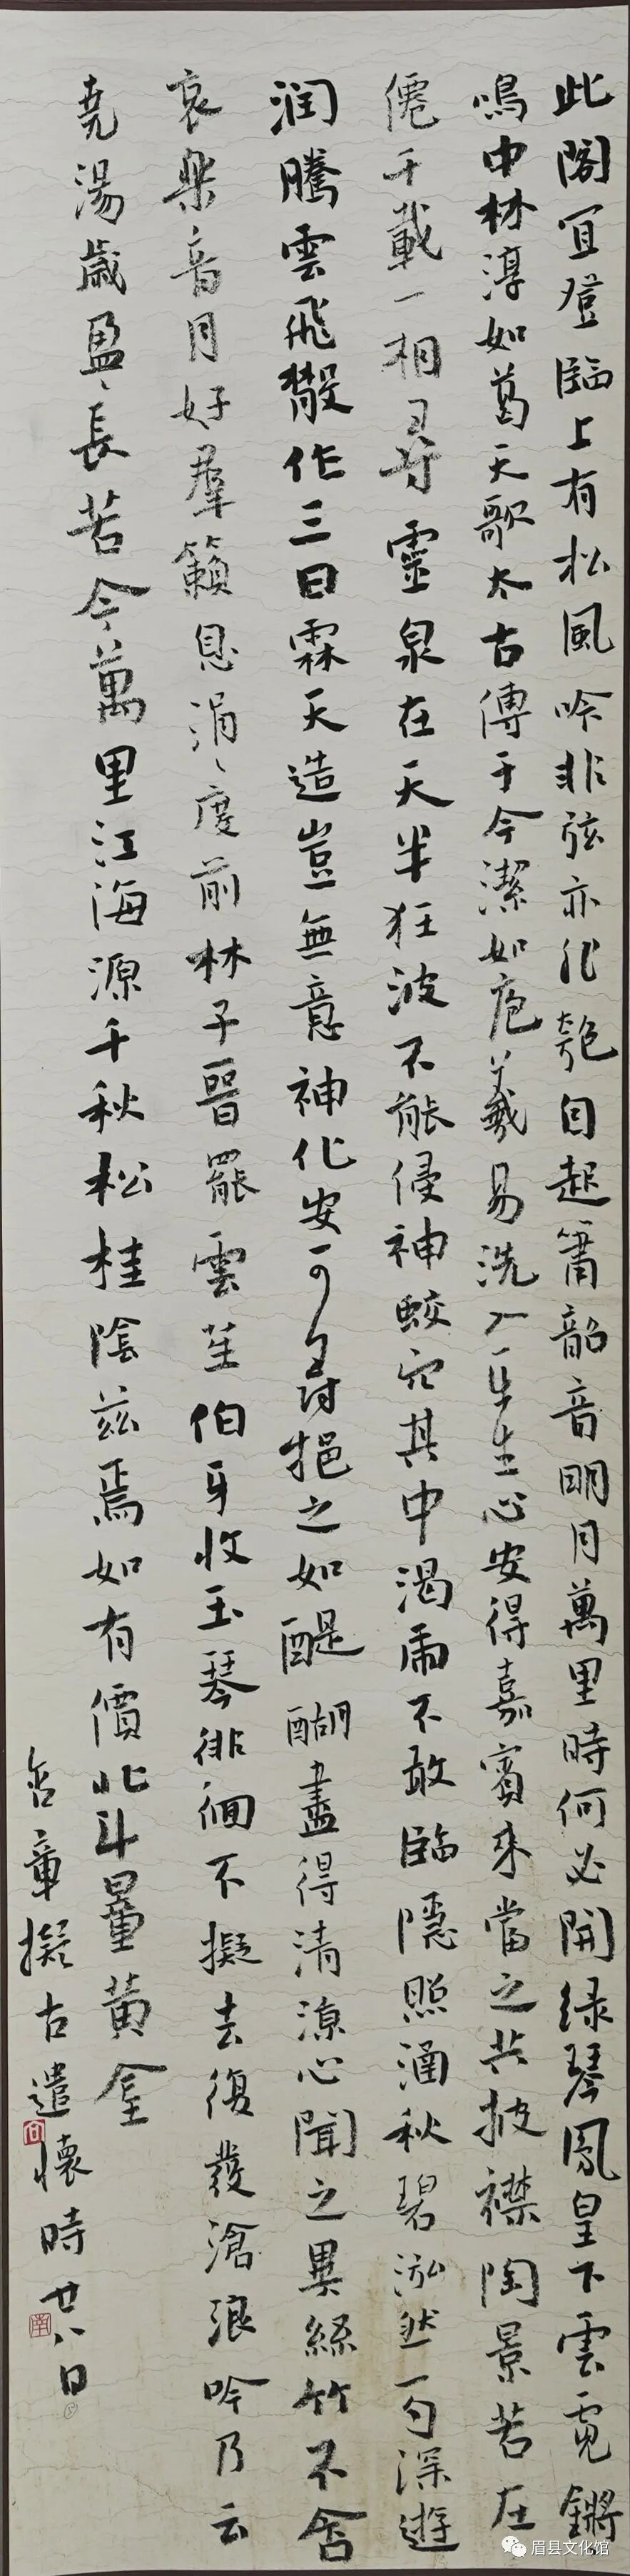 此閣宜登臨上有松風吟非弦亦非匏自起簫韶音明月萬里時何必開綠琴鳳皇下雲霓鏘
鳴中林淳如葛天歌太古傳于今潔如庖羲易洗人平生心安得嘉賓來當之共披襟陶景若在
僊千載一相尋靈泉在天半狂波不能侵神蛟穴其中渴虎不敢臨隱照涵秋碧泓然一勺深遊
润騰雲飛散作三日霖天造豈無意神化安可尋挹之如醍醐盡得清涼心聞之異絲竹不含
哀樂音月好羣籟息涓〻度前林子晉罷雲笙伯牙收玉琴徘徊不擬去復發滄浪吟乃云
堯湯歲盈〻長若今萬里江海源千秋松桂陰兹焉如有價北斗量黄金
含章擬古遣懷時廿八日
眉县文化馆